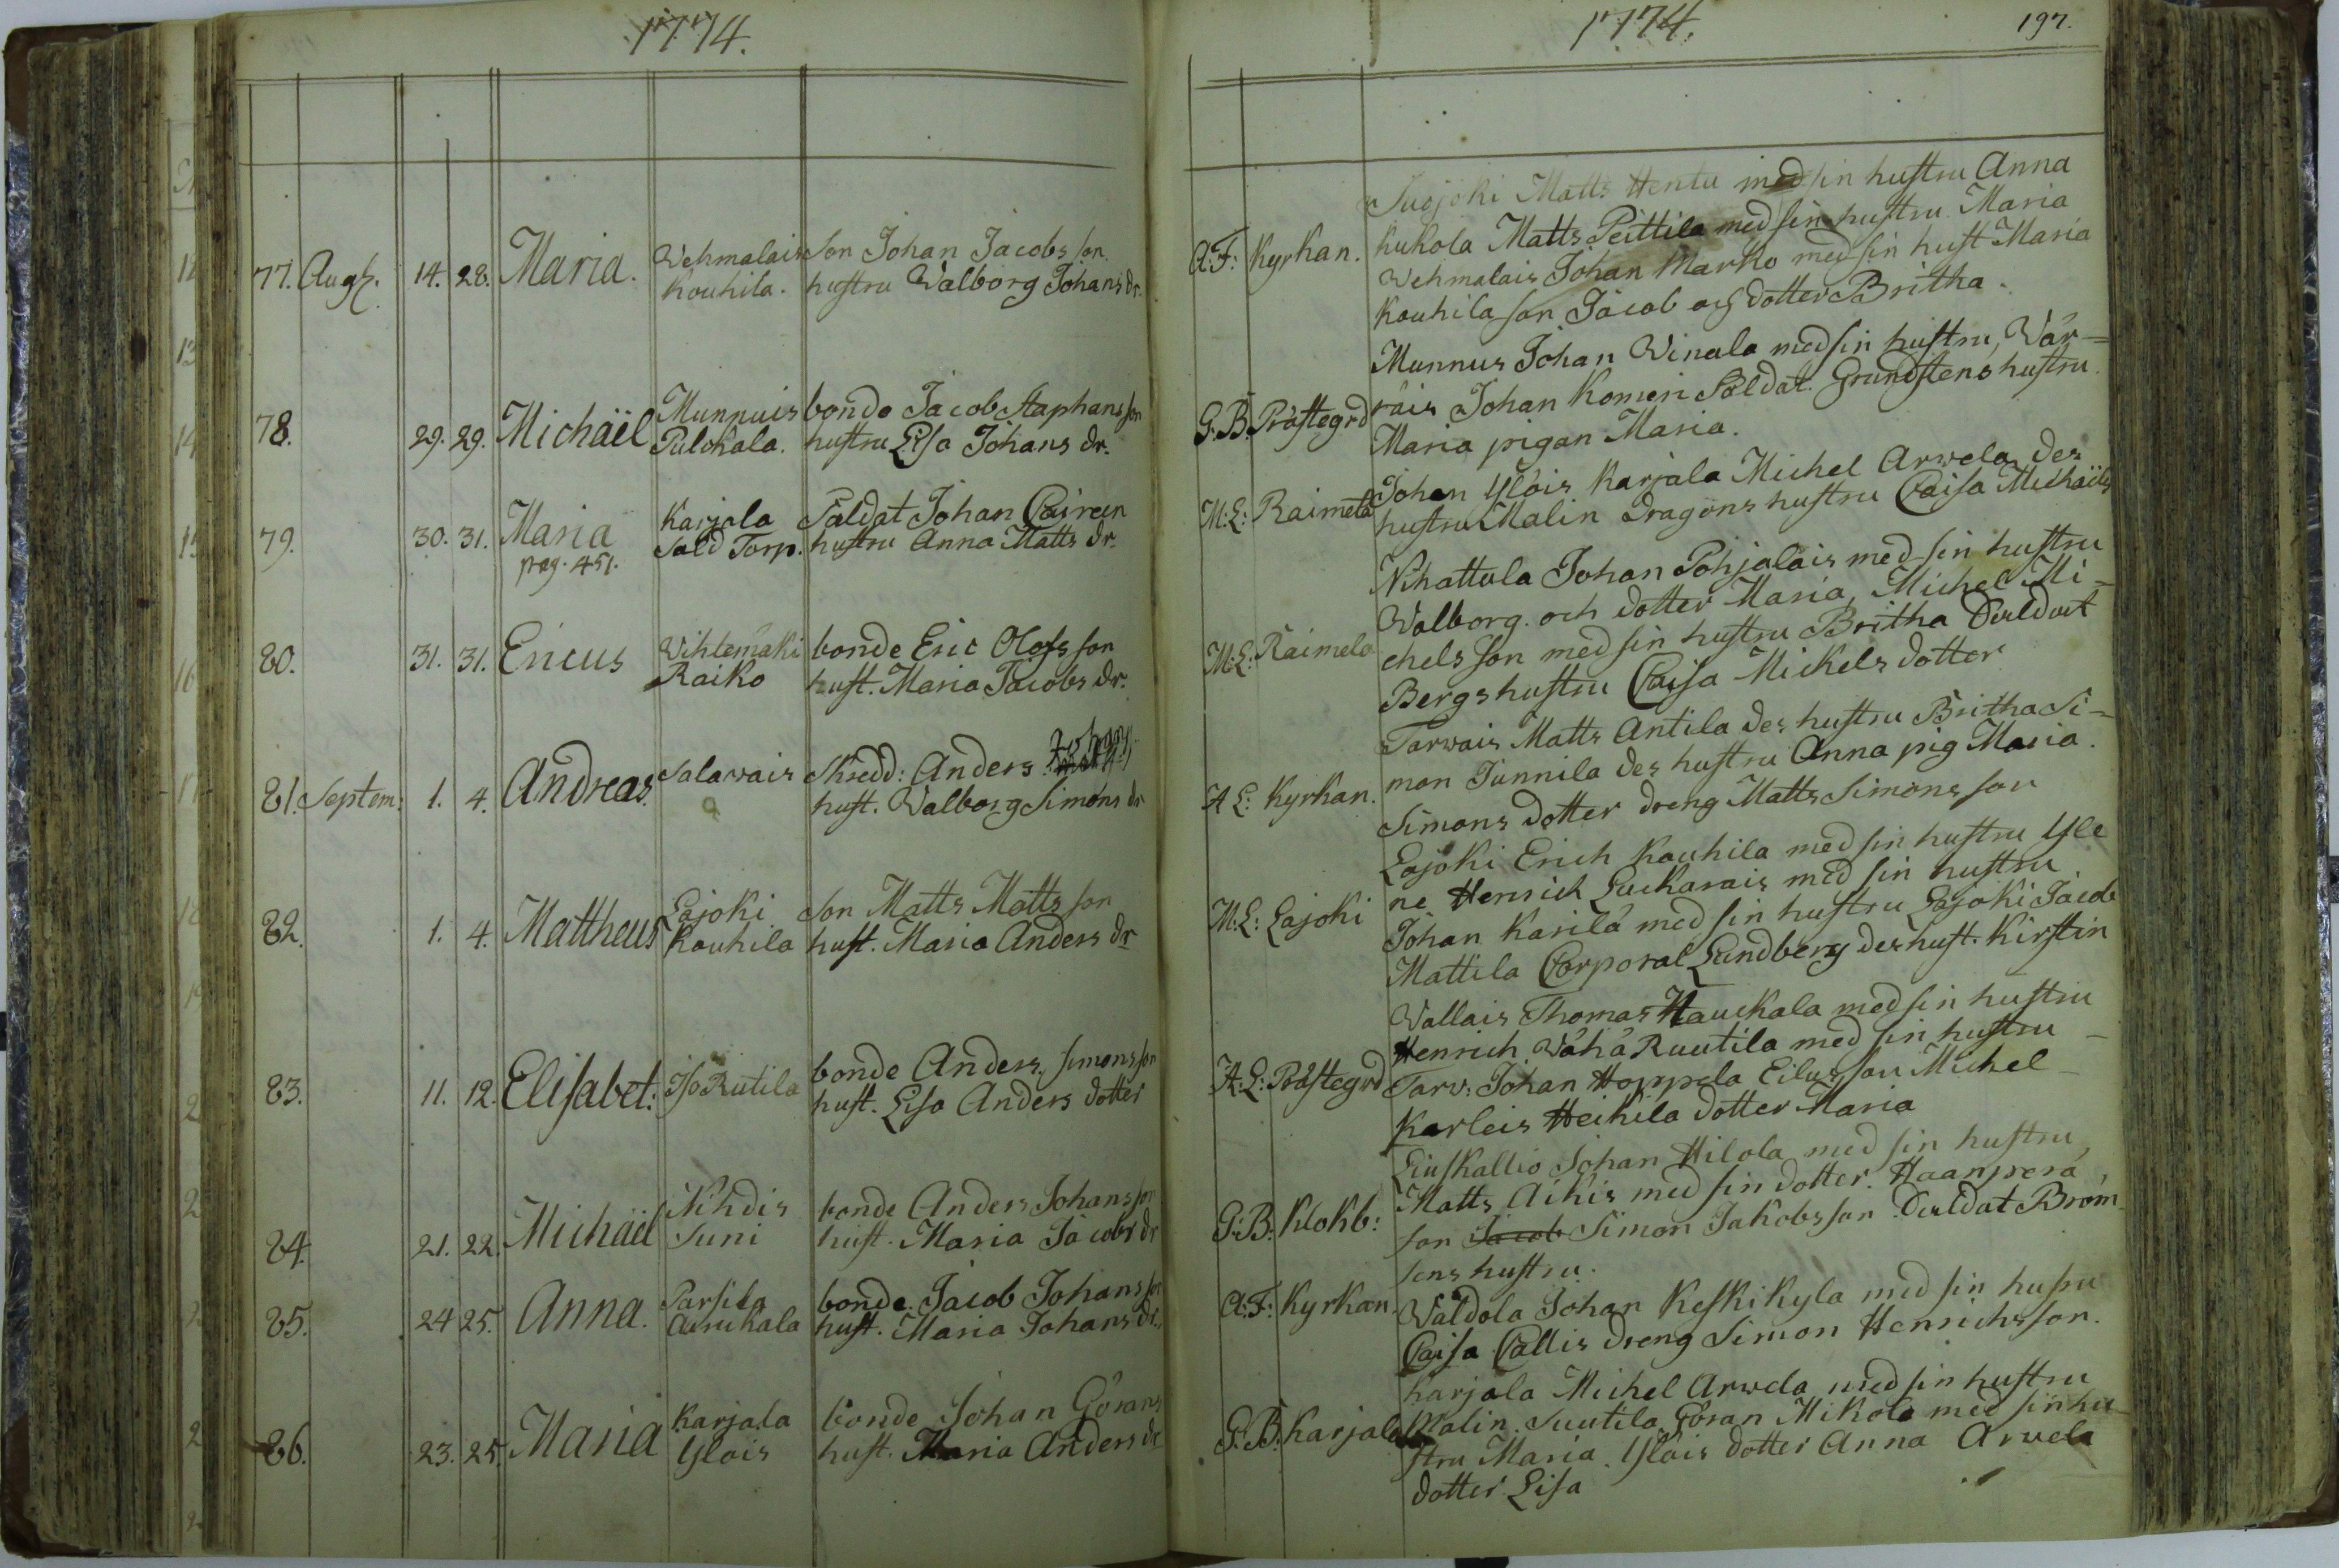 1774.
77. Aug. 14. 28. Maria. Wehmalais son Johan Jacobs son.
Kouhila. hustru Walborg Johans dr.
78. 29. 29. Michaël Munnuis bonde Jacob Staphans son
Pulckala. hustru Lisa Johans dr.
79. 30. 31. Maria Karjala Saldat Johan Caireen
pag. 451. Sald Torp. hustru Anna Matts dr.
80. 31. 31. Ericus Wihlemäki bonde Eric Olofs son
Raiko hust. Maria Jacobs dr.
81. Septem: 1. 4. Andreas. Salavais Skredd: Anders
hust. Walborg Simons dr
82. 1. 4. Mattheus Lajoki Son Matts Matts son
Kouhila hust. Maria Anders dr
83. 11. 12. Elisabet: Iso Rutila bonde Anders Simons son
hust. Lisa Anders dotter
84. 21. 22. Michäel Nihdis bonde Anders Johans son
Suni hust. Maria Jacobs dr
85. 24 25. Anna. Parsila bonde Jacob Johans son
Aurukala hust. Maria Johans dr.
86. 23. 25. Maria Karjala bonde Johan Görans
Ylöis hust. Maria Anders dr
1774. 197.
Suojoki Matts Hentu med sin hustru Anna
A:F: Kyrkan. Kukola Matts Peittila med sin hustru Maria
Wehmalais Johan Marko med sin hust Maria
Kouhila son Jacob och dotter Britha.
Munnus Johan Winala med sin hustru, Wär=
G:B: Prästegrd räis Johan Komeri Saldat Grundstens hustru
Maria pigan Maria.
M:L: Raimela Johan Ylöis Karjala Michel Arwela des
hustru Malin Dragons hustru Caisa Michaëls
Nihattula Johan Pohjalais med sin hustru
Walborg och dotter Maria, Michel Mi=
M:L: Raimela chels son med sin hustru Britha Saldat
Bergs hustru Caisa Mickels dotter
Tarwais Matts Antila des hustru Britha Si=
mon Junnila des hustru Anna pig Maria.
A L: Kyrkan. Simons dotter dreng Matts Simons son
Lajoki Erich Kouhila med sin hustru Yle
ne Henrich Luckarais med sin hustru
M:L: Lajoki Johan Karilä med sin hustru Lajoki Jacob
Mattila Corporal Lundberg des hust. Kirstin
Wallais Thomas Hauckala med sin hustru
Henrich Wähä Ruutila med sin hustru
A:L: Prästegrd Tarv: Johan Hoppela Eilus son Michel
Karleis Heikila dotter Maria
Liuskallio Johan Hilola med sin hustru,
Matts Aikis med sin dotter. Haanperä
G:B: Klokb: son Jacob Simon Jakobs son Saldat Bröm
sens hustru.
A:F: Kyrkan. Waldola Johan Keskikyla med sin husru
Caisa Callis dreng Simon Henrichs son.
Karjala Michel Arwela med sin hustru
G:B: Karjala Malin. Suutila Göran Mikola med sin hu
stru Maria. Ylöis dotter Anna Arvela
dotter Lisa